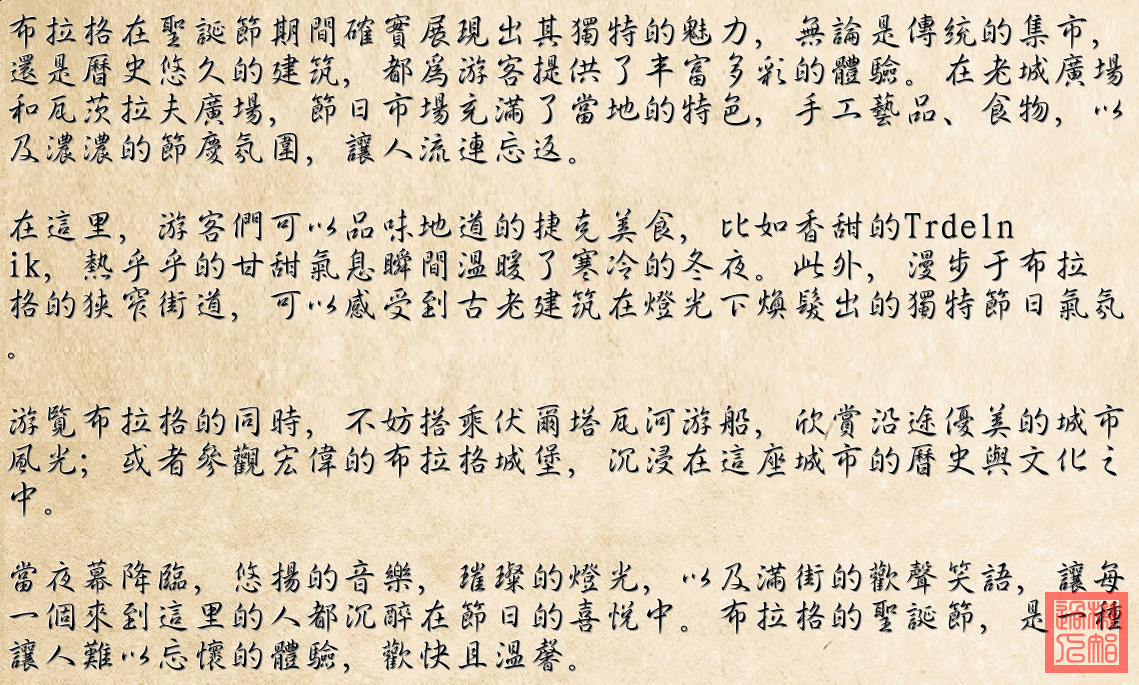 布拉格在聖誕節期間確實展現出其獨特的魅力，無論是傳統的集市，
還是曆史悠久的建筑，都爲游客提供了丰富多彩的體驗。在老城廣場
和瓦茨拉夫廣場，節日市場充滿了當地的特色，手工藝品、食物，以
及濃濃的節慶氛圍，讓人流連忘返。
在這里，游客們可以品味地道的捷克美食，比如香甜的Trdeln
ik，熱乎乎的甘甜氣息瞬間溫暖了寒冷的冬夜。此外，漫步于布拉
格的狹窄街道，可以感受到古老建筑在燈光下煥髮出的獨特節日氣氛
。
游覽布拉格的同時，不妨搭乘伏爾塔瓦河游船，欣賞沿途優美的城市
風光；或者參觀宏偉的布拉格城堡，沉浸在這座城市的曆史與文化之
中。
當夜幕降臨，悠揚的音樂，璀璨的燈光，以及滿街的歡聲笑語，讓每
一個來到這里的人都沉醉在節日的喜悅中。布拉格的聖誕節，是一種
讓人難以忘懷的體驗，歡快且溫馨。